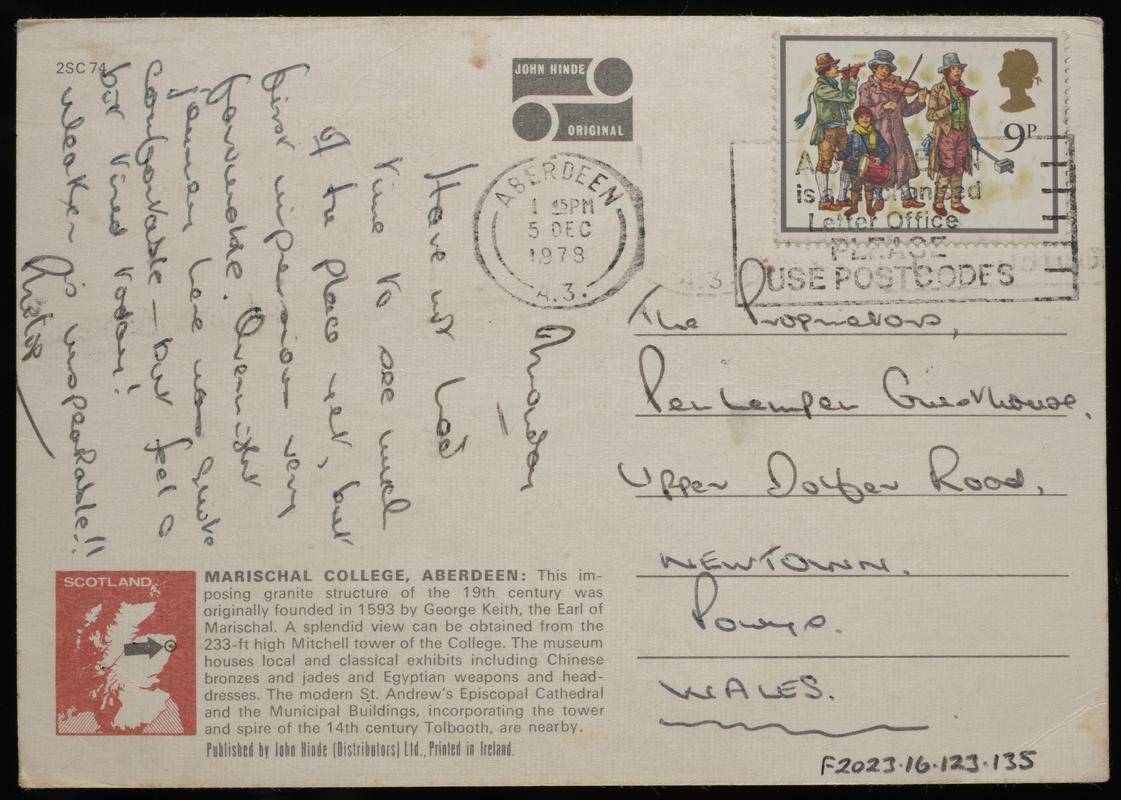 2SC 74
JOHN HINDE
ORIGINAL
ABERDEEN
1 45PM
5 DEC
1978
A.3.
9P
is a mechanised
Letter Office
PLEASE
USE POSTCODES
Monday
Have not had
time to see much
of the place yet, but
first impression very
favourable. Overnight
journey here was quite
comfortable — but feel a
bit tired today!
Weather is unspeakable!!
The Proprietors,
Guesthouse,
Upper Road,
NEWTOWN.
Powys.
WALES.
SCOTLAND
MARISCHAL COLLEGE, ABERDEEN: This im-
posing granite structure of the 19th century was
originally founded in 1593 by George Keith, the Earl of
Marischal. A splendid view can be obtained from the
233-ft high Mitchell tower of the College. The museum
houses local and classical exhibits including Chinese
bronzes and jades and Egyptian weapons and head-
dresses. The modern St. Andrew's Episcopal Cathedral
and the Municipal Buildings, incorporating the tower
and spire of the 14th century Tolbooth, are nearby.
Published by John Hinde (Distributors) Ltd., Printed in Ireland.
F2023.16.123.135